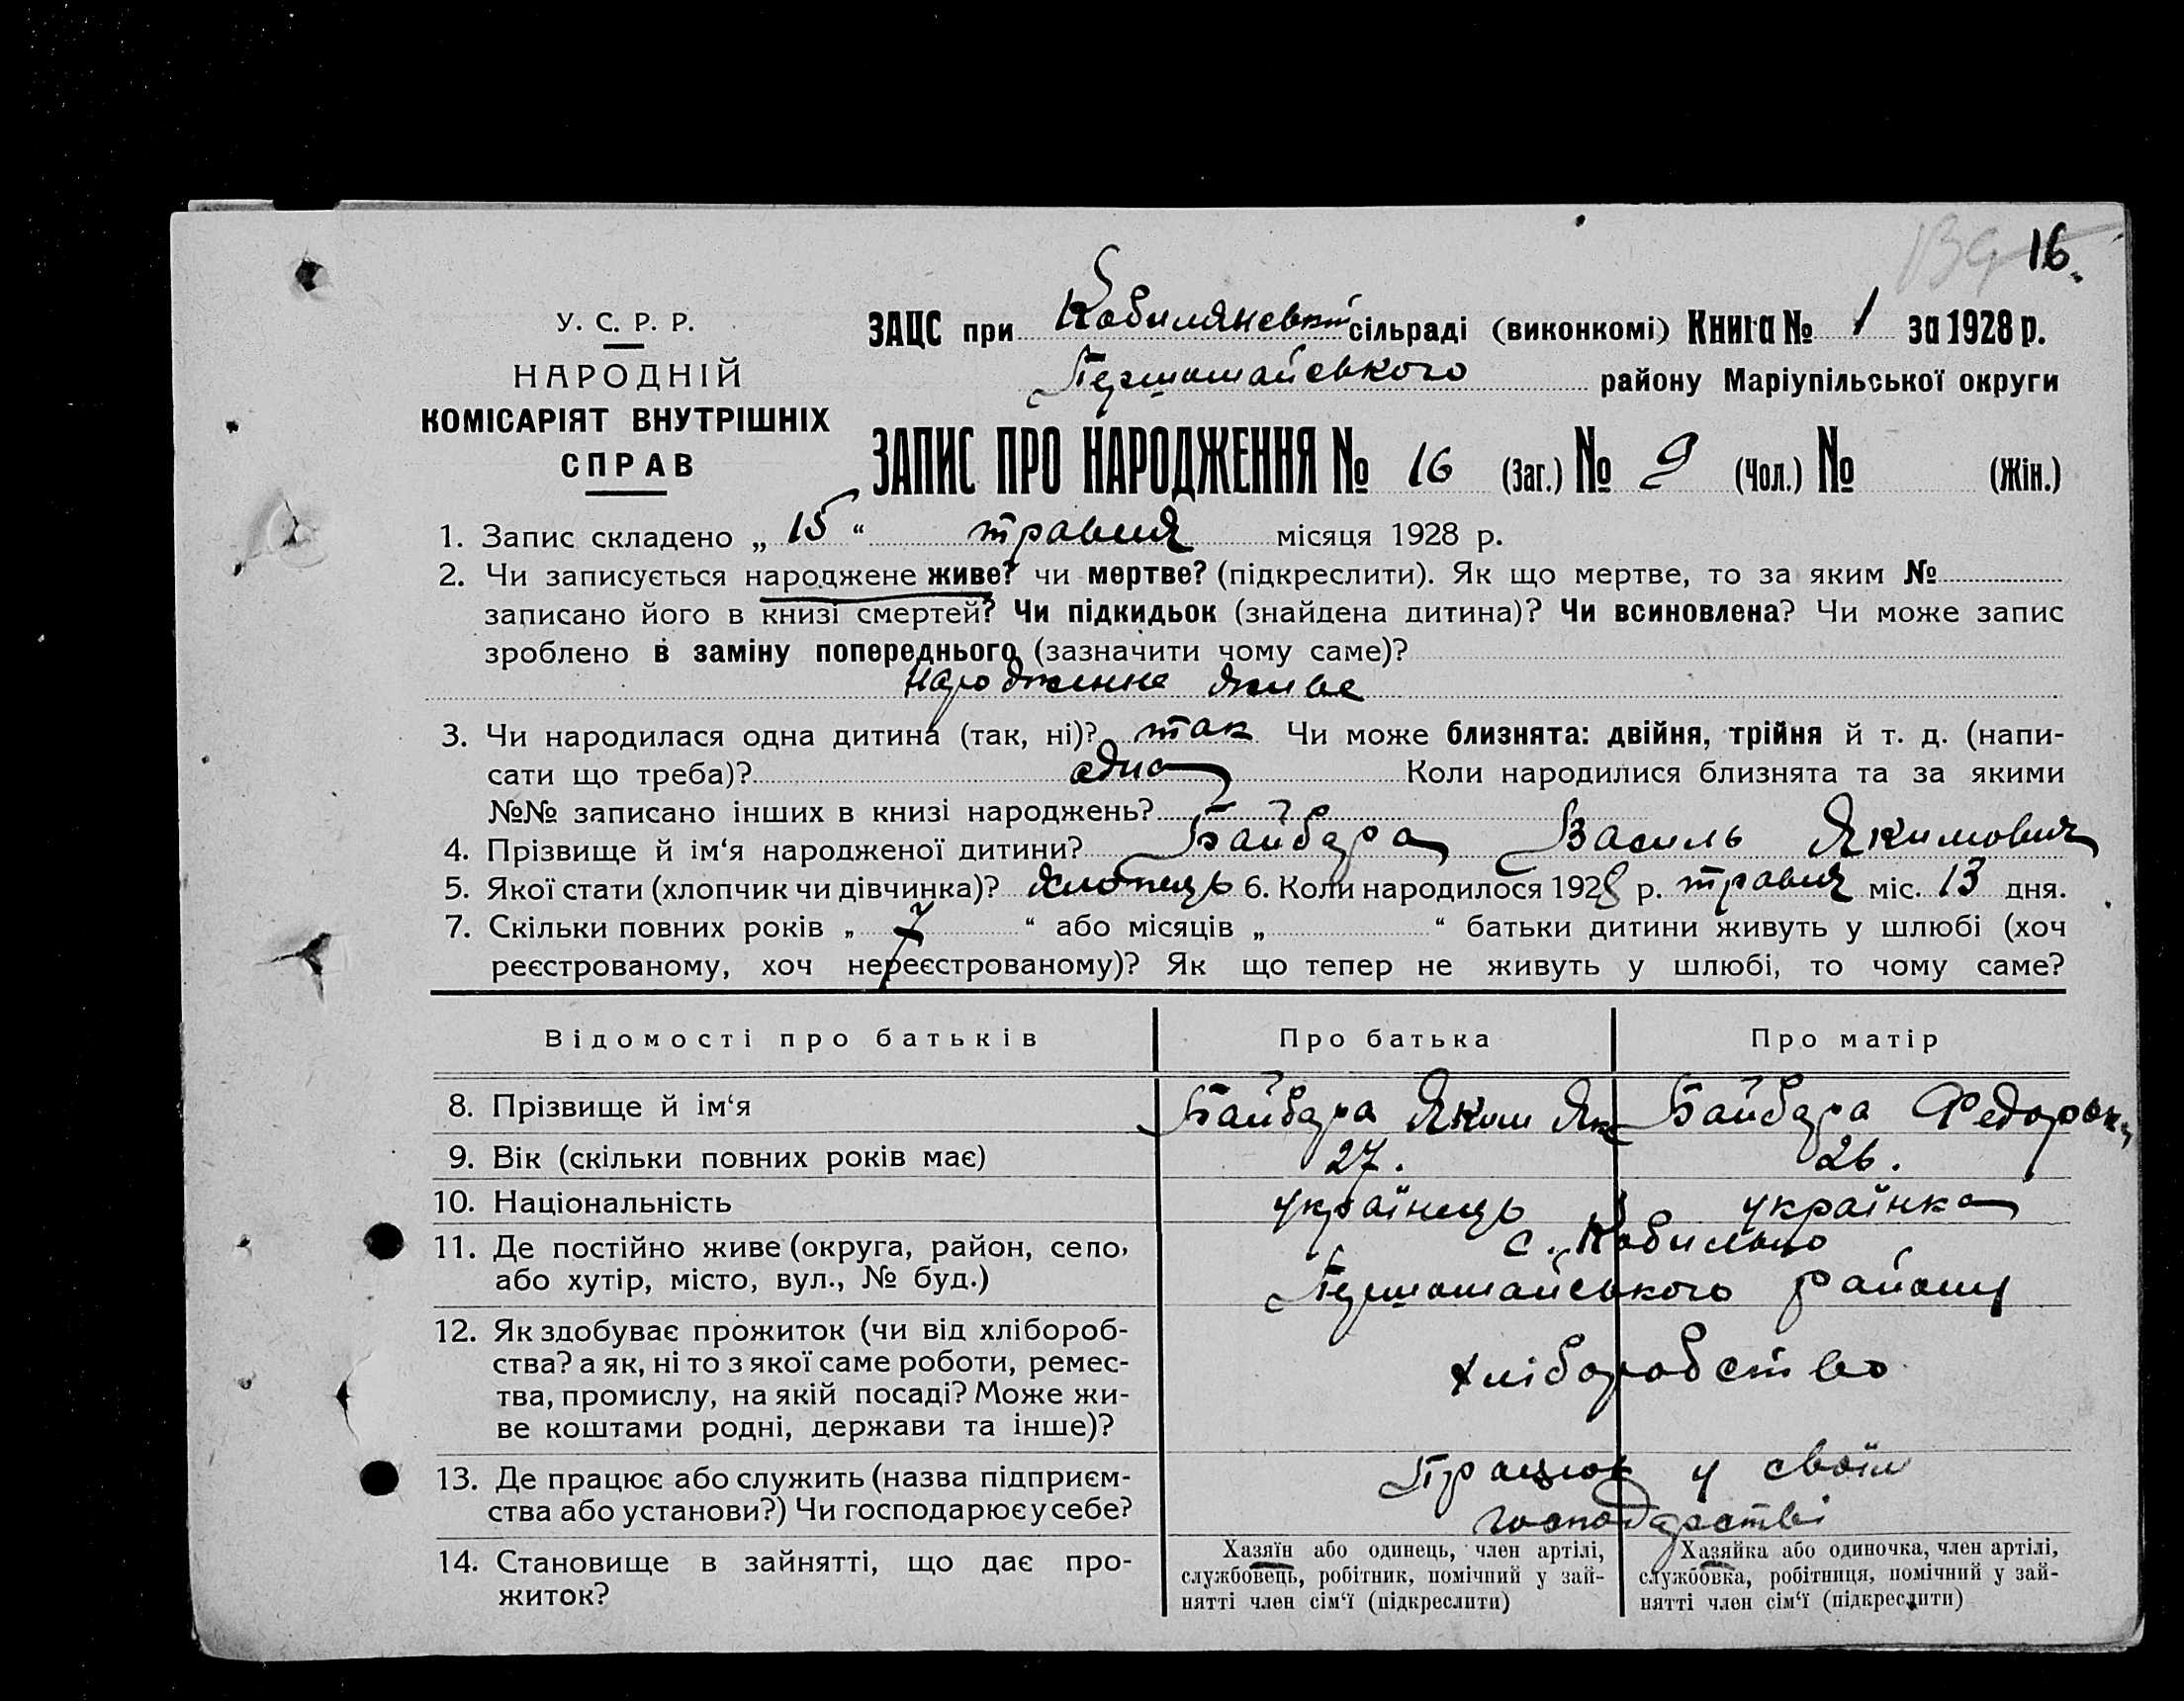 139 16.
У. С. Р. Р.
НАРОДНІЙ
КОМІСАРІЯТ ВНУТРІШНІХ
СПРАВ
ЗАЦС при Кобилянській сільраді (виконкомі) Книга № 1 за 1928 р.
Першомайського району Маріупільської округи
ЗАПИС ПРО НАРОДЖЕННЯ № 16 (Заг.) № 9 (Чол.) № (Жін.)
1. Запис складено „ 15 “ травня місяця 1928 р.
2. Чи записується народжене живе? чи мертве? (підкреслити). Як що мертве, то за яким №
записано його в книзі смертей? Чи підкидьок (знайдена дитина)? Чи всиновлена? Чи може запис
зроблено в заміну попереднього (зазначити чому саме)?
народженне живе
3. Чи народилася одна дитина (так, ні)? так Чи може близнята: двійня, трійня й т. д. (напи-
сати що треба)? одна Коли народилися близнята та за якими
№№ записано інших в книзі народжень?
4. Прізвище й ім‘я народженої дитини? Байбара Василь Якимович
5. Якої стати (хлопчик чи дівчинка)? хлопець 6. Коли народилося 1928 р. травня міс. 13 дня.
7. Скільки повних років „ 7 “ або місяців „ “ батьки дитини живуть у шлюбі (хоч
реєстрованому, хоч нереєстрованому)? Як що тепер не живуть у шлюбі, то чому саме?
Відомості про батьків Про батька Про матір
8. Прізвище й ім‘я Байбара Яким Як Байбара
9. Вік (скільки повних років має) 27. 26.
10. Національність українець українка
11. Де постійно живе (округа, район, село,
або хутір, місто, вул., № буд.)
с. Кобильно
Першомайського району
12. Як здобуває прожиток (чи від хлібороб-
ства? а як, ні то з якої саме роботи, ремес-
тва, промислу, на якій посаді? Може жи-
ве коштами родні, держави та інше)?
хліборобство
13. Де працює або служить (назва підприєм-
ства або установи?) Чи господарює у себе?
Працює у своїм
господарстві
14. Становище в зайнятті, що дає про-
житок?
Хазяїн або одинець, член артілі,
службовець, робітник, помічний у зай-
нятті член сім‘ї (підкреслити)
Хазяйка або одиночка, член артілі,
службовка, робітниця, помічний у зай-
нятті член сім‘ї (підкреслити)